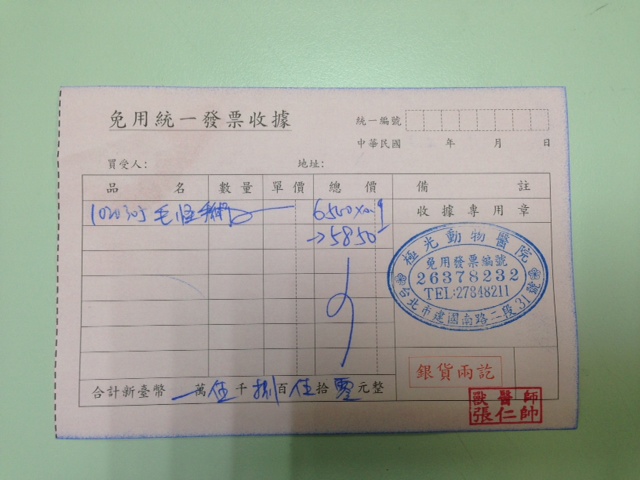 免用統一發票收據
統一編號
中華民國 年 月 日
買受人: 地址:
品名 數量 單價 總價 備註
1020305 毛怪手術 6500x0.9
→5850
收據專用章
極光動物醫院
免用發票編號
26378232
TEL:27848211
台北市建國南路二段31號
銀貨兩訖
合計新臺幣 萬伍千捌百伍拾零元整
獸醫師
張仁帥